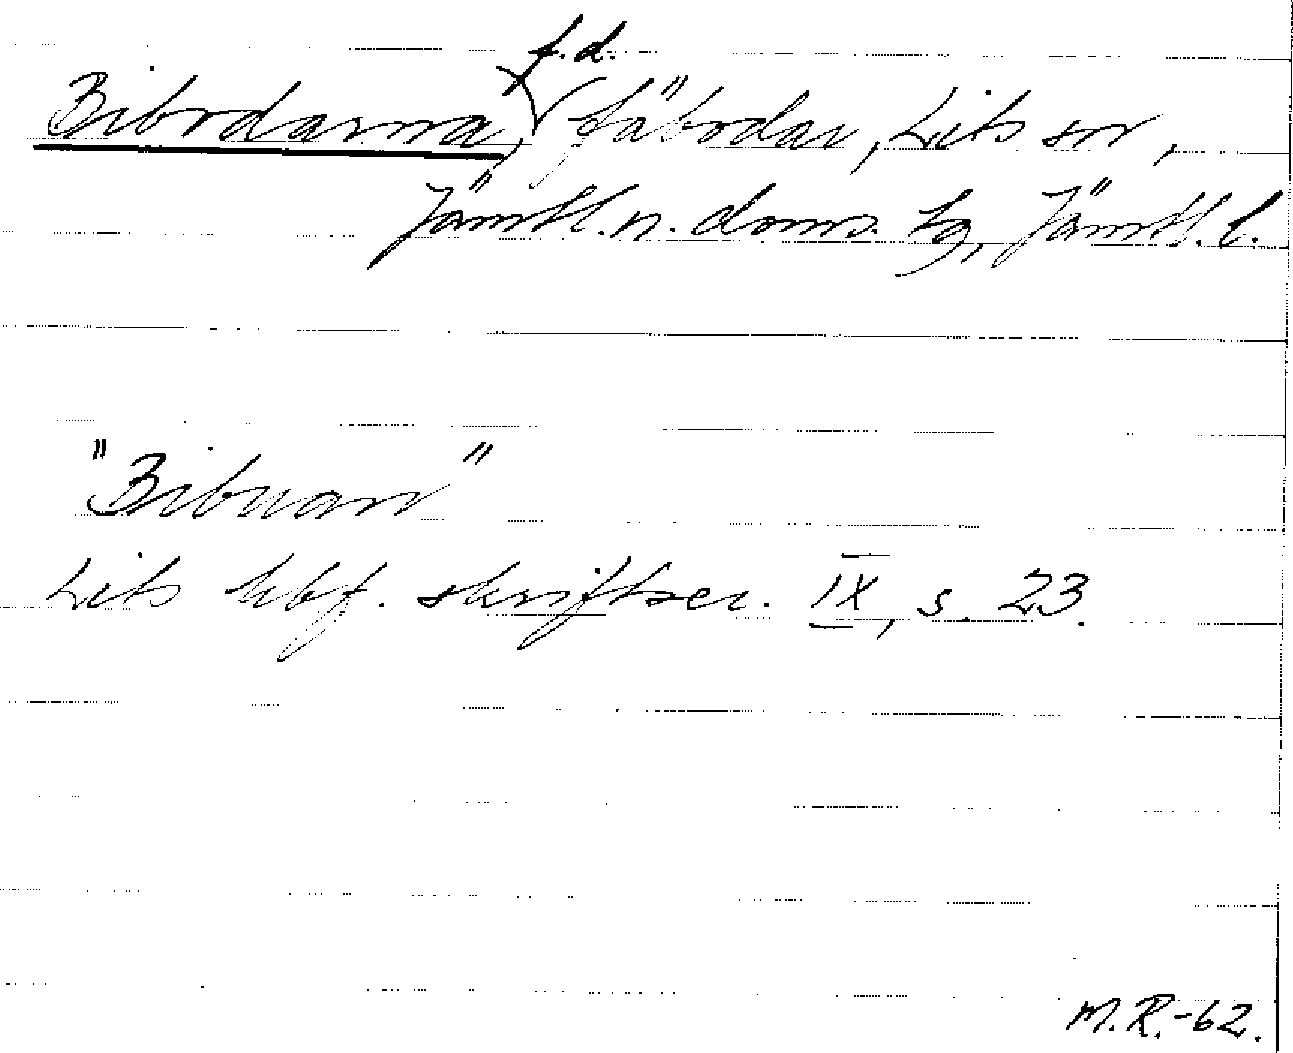 f.d.
Bibodarna, fäbodar, Lits sn,
Jämtl. n. doms. tg, Jämtl. l.
"Bibuan"
Lits hbf. skriftser. IX, s. 23.
M.R.-62.